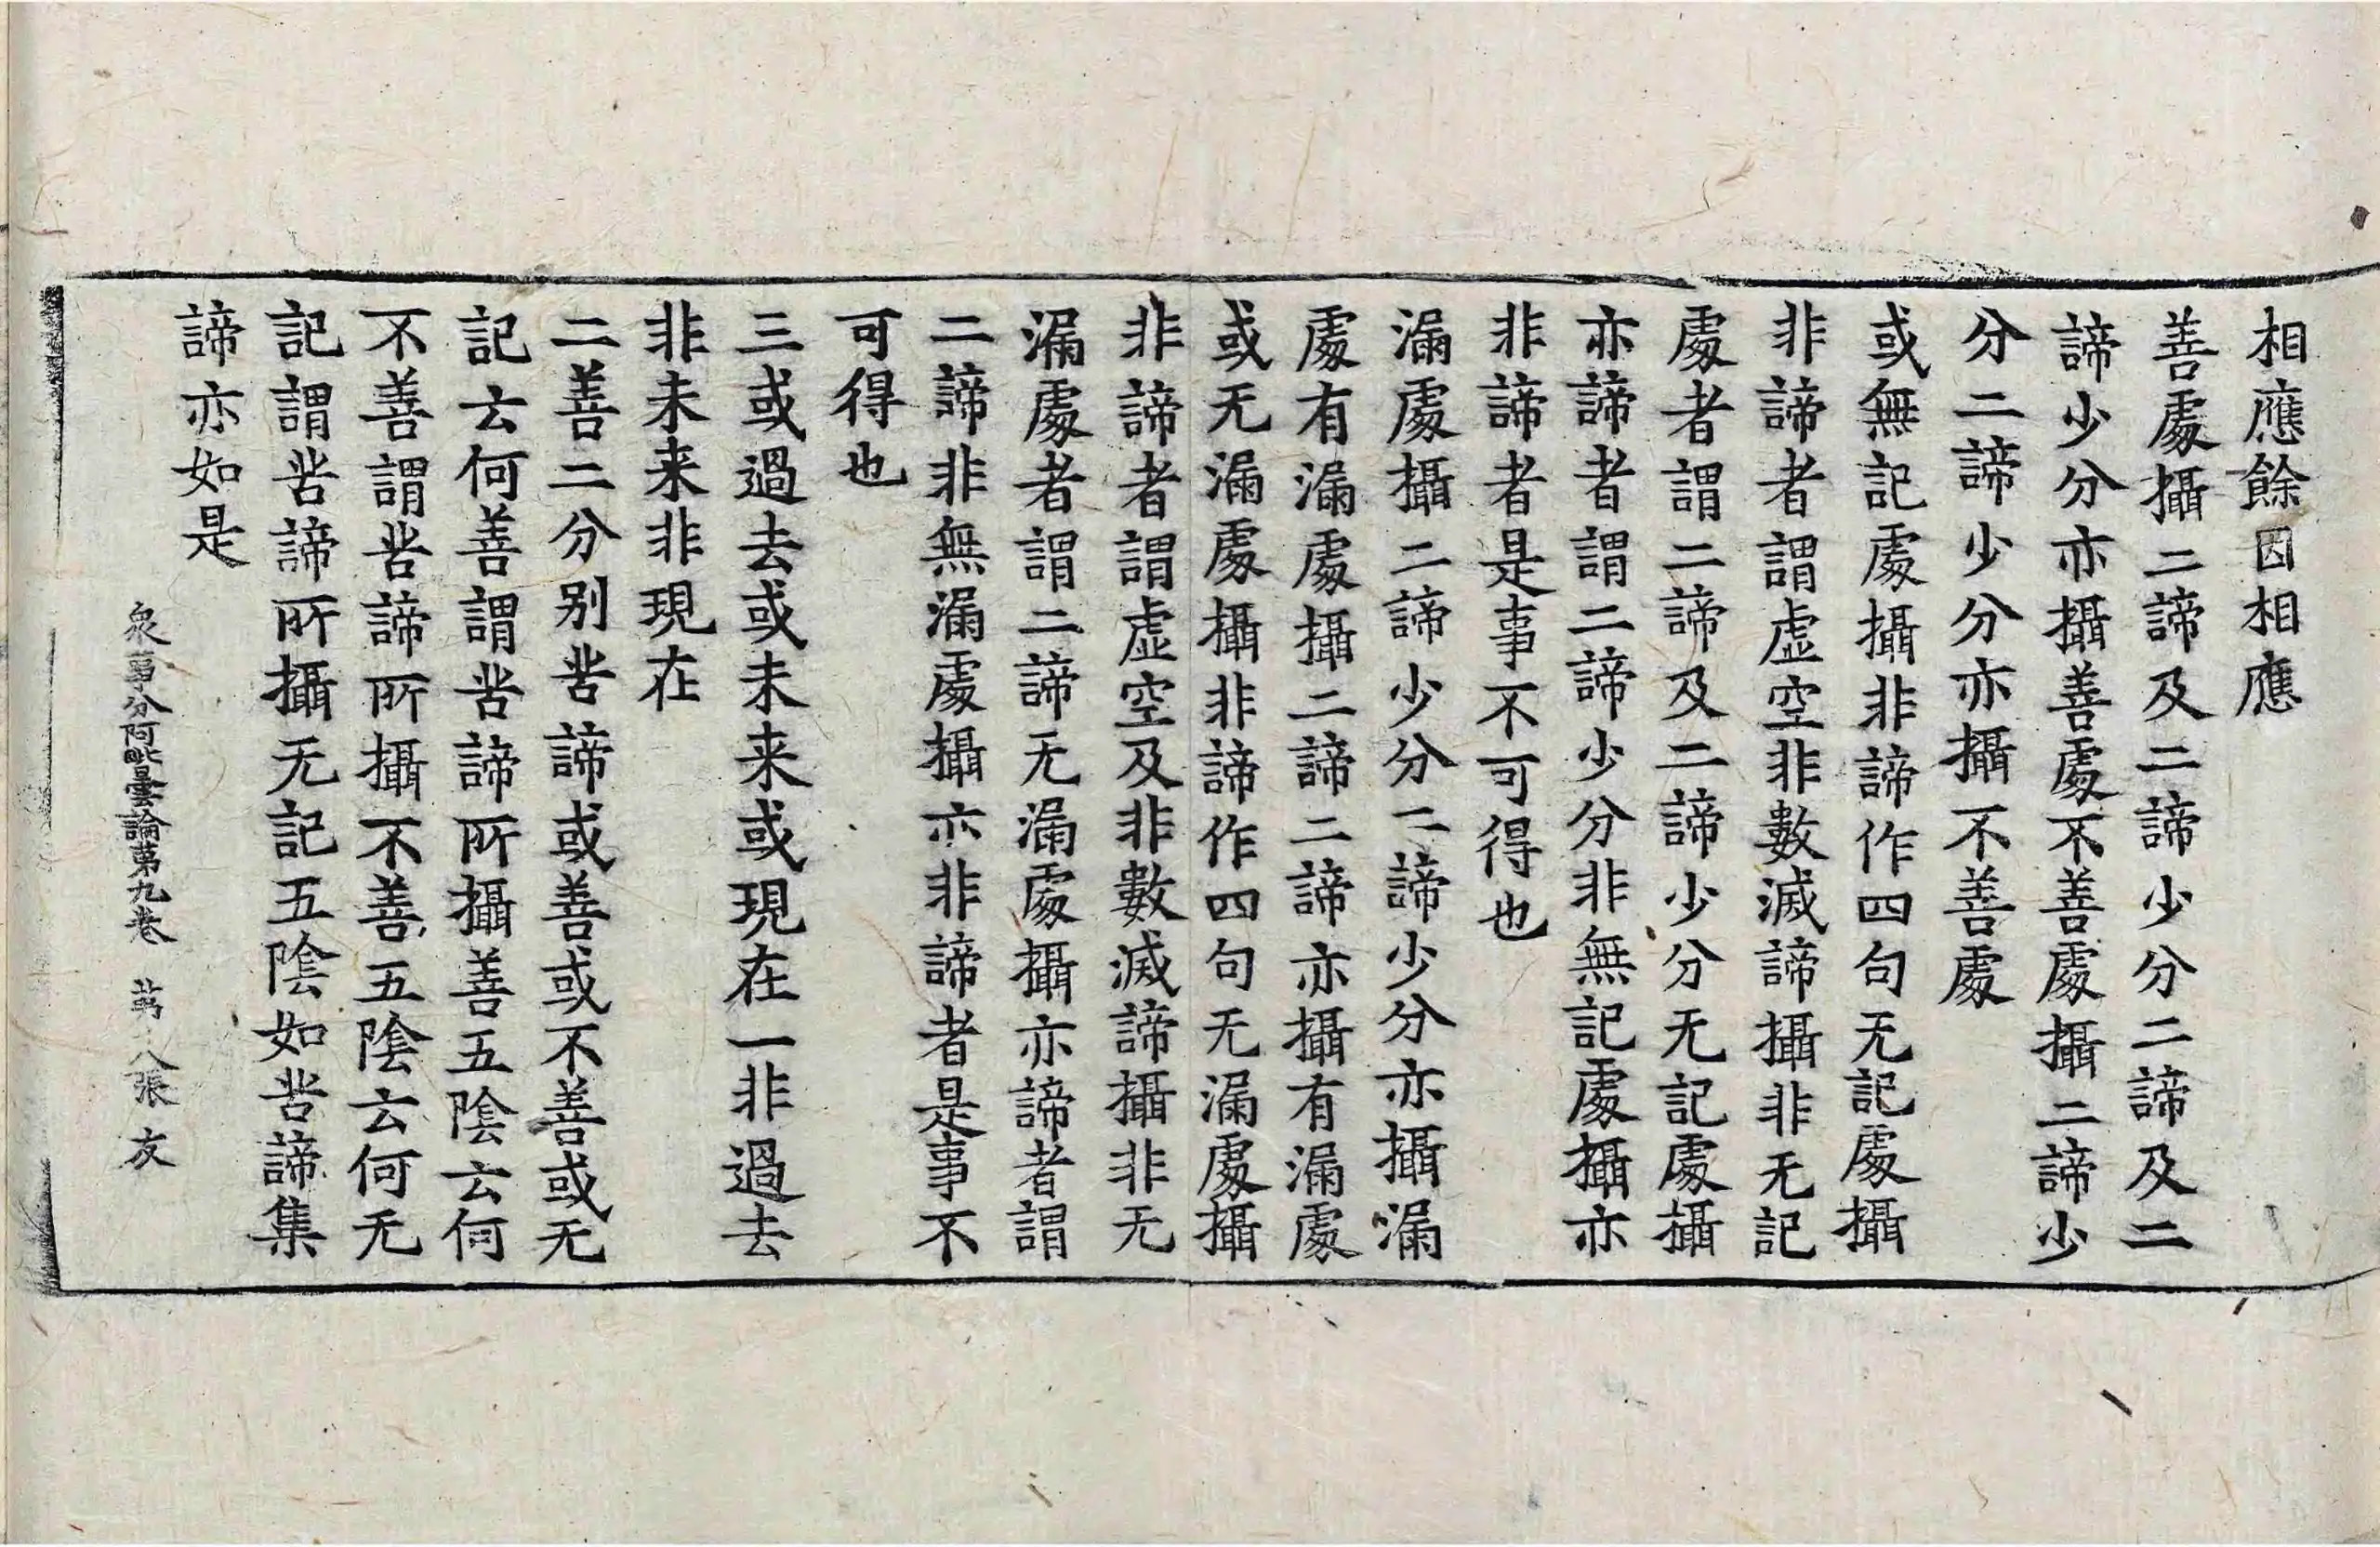 相應餘因相應
善處攝二諦及二諦少分二諦及二
諦少分亦攝善處不善處攝二諦少
分二諦少分亦攝不善處
或無記處攝非諦作四句无記處攝
非諦者謂虛空非數滅諦攝非无記
處者謂二諦及二諦少分无記處攝
亦諦者謂二諦少分非無記處攝亦
非諦者是事不可得也
漏處攝二諦少分二諦少分亦攝漏
處有漏處攝二諦二諦亦攝有漏處
或无漏處攝非諦作四句无漏處攝
非諦者謂虛空及非數滅諦攝非无
漏處者謂二諦无漏處攝亦諦者謂
二諦非無漏處攝亦非諦者是事不
可得也
三或過去或未来或現在一非過去
非未来非現在
二善二分別苦諦或善或不善或无
記云何善謂苦諦所攝善五陰云何
不善謂苦諦所攝不善五陰云何无
記謂苦諦所攝无記五陰如苦諦集
諦亦如是
衆事分阿毗曇論第九卷 第八張 友